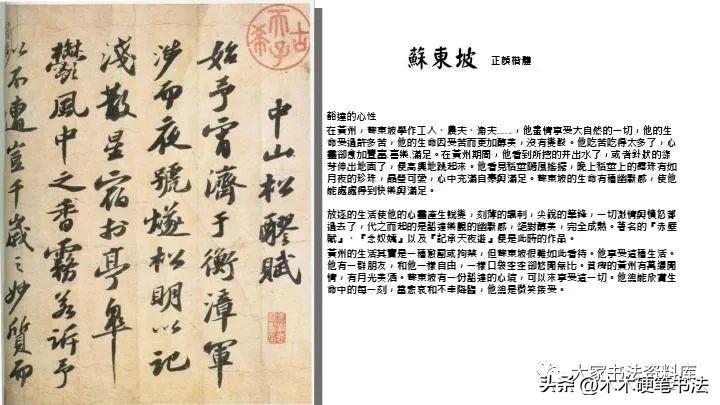 中山松醪賦
始予宵濟于衡漳軍
涉而夜號燧松明以記
淺散星宿於亭皋
鬱風中之香霧若訴予
以不遭豈千歲之妙質而
古希天子
蘇東坡 正顏楷體
豁達的心性
在黃州，蘇東坡學作工人、農夫、漁夫......，他盡情享受大自然的一切，他的生
命受過許多苦，他的生命因受苦而更加醇美，沒有變酸。他吃苦吃得太多了，心
靈卻應加豐富.喜樂.滿足。在黃州期間，他看到所挖的井出水了，或者針狀的綠
芽伸出地面了，便高興地跳起來。他看見稻莖隨風搖擺，晚上稻莖上的露珠有如
月夜的珍珠，晶瑩可愛，心中充滿自尊與滿足。蘇東坡的生命有種幽默感，使他
能處處得到快樂與滿足。
放逐的生活使他的心靈產生蛻變，刻薄的諷刺，尖銳的筆鋒，一切激情與憤怒都
過去了，代之而起的是豁達樂觀的幽默感，絕對醇美，完全成熟。著名的『赤壁
賦』、『念奴嬌』以及『記承天夜遊』便是此時的作品。
黃州的生活其實是一種或拘禁，但蘇東坡很難如此看待。他享受這種生活。
他有一群朋友，和他一樣自由，一樣口袋空空卻悠閒無比。貧瘠的黃州有萬縷閒
情，有月光美酒。蘇東坡有一份豁達的心情，可以來享受這一切。他總能欣賞生
命中的每一刻，當悲哀和不幸降臨，他總是微笑接受。
大家书法资料库
头条 @木木硬笔书法